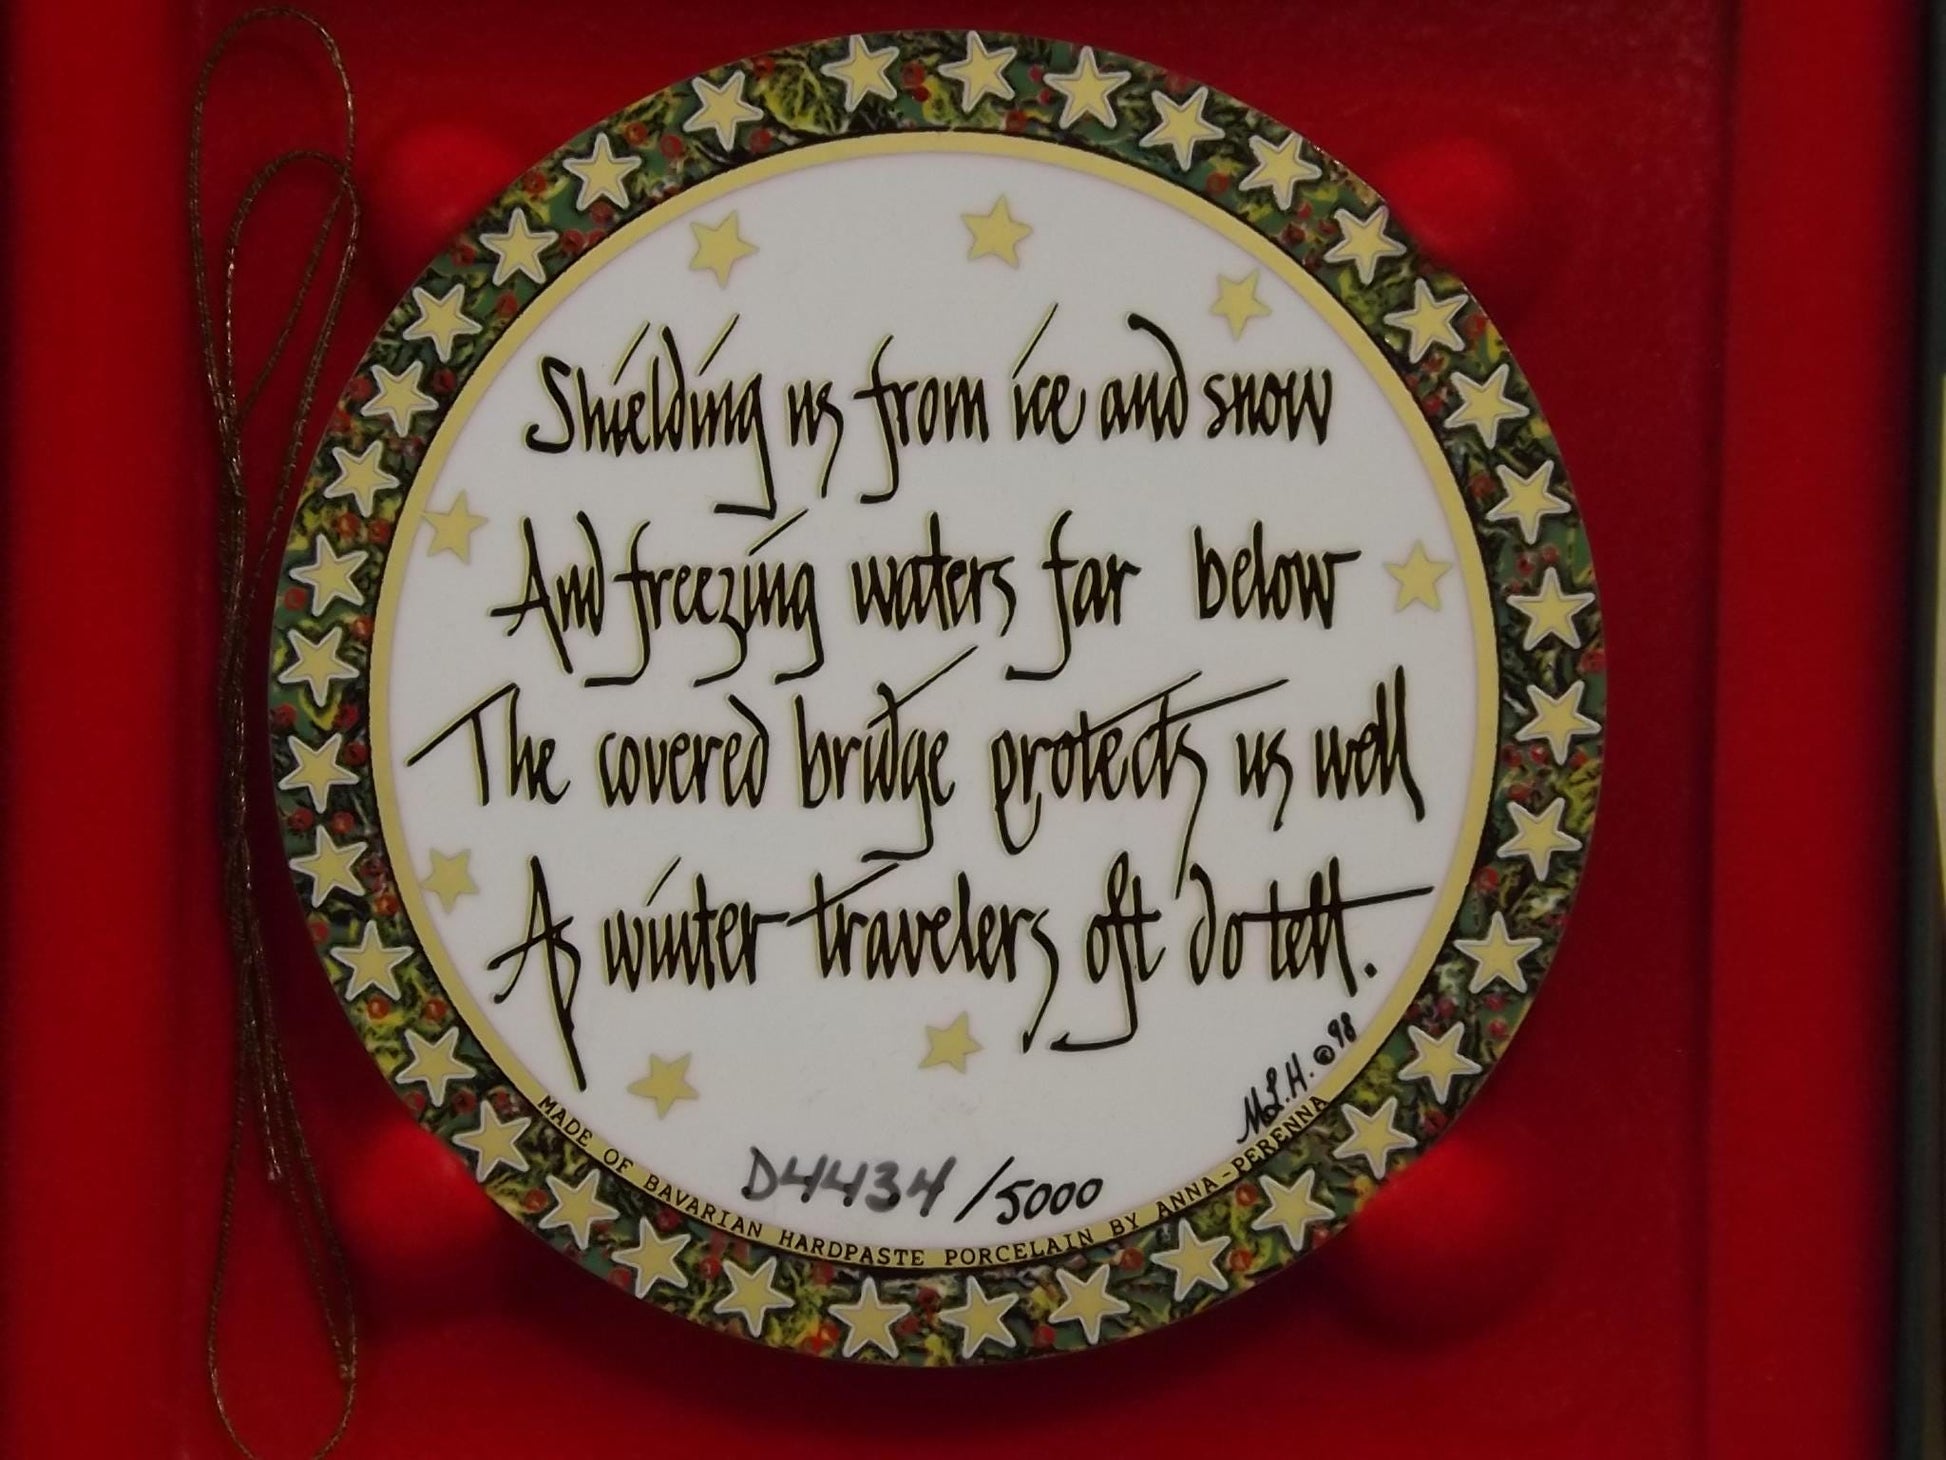 Shielding us from ice and snow
And freezing waters far below
The covered bridge protects us well
As winter travelers oft do tell.
M.L.H. © 98
D4434/5000
MADE OF BAVARIAN HARDPASTE PORCELAIN BY ANNA-PERENNA